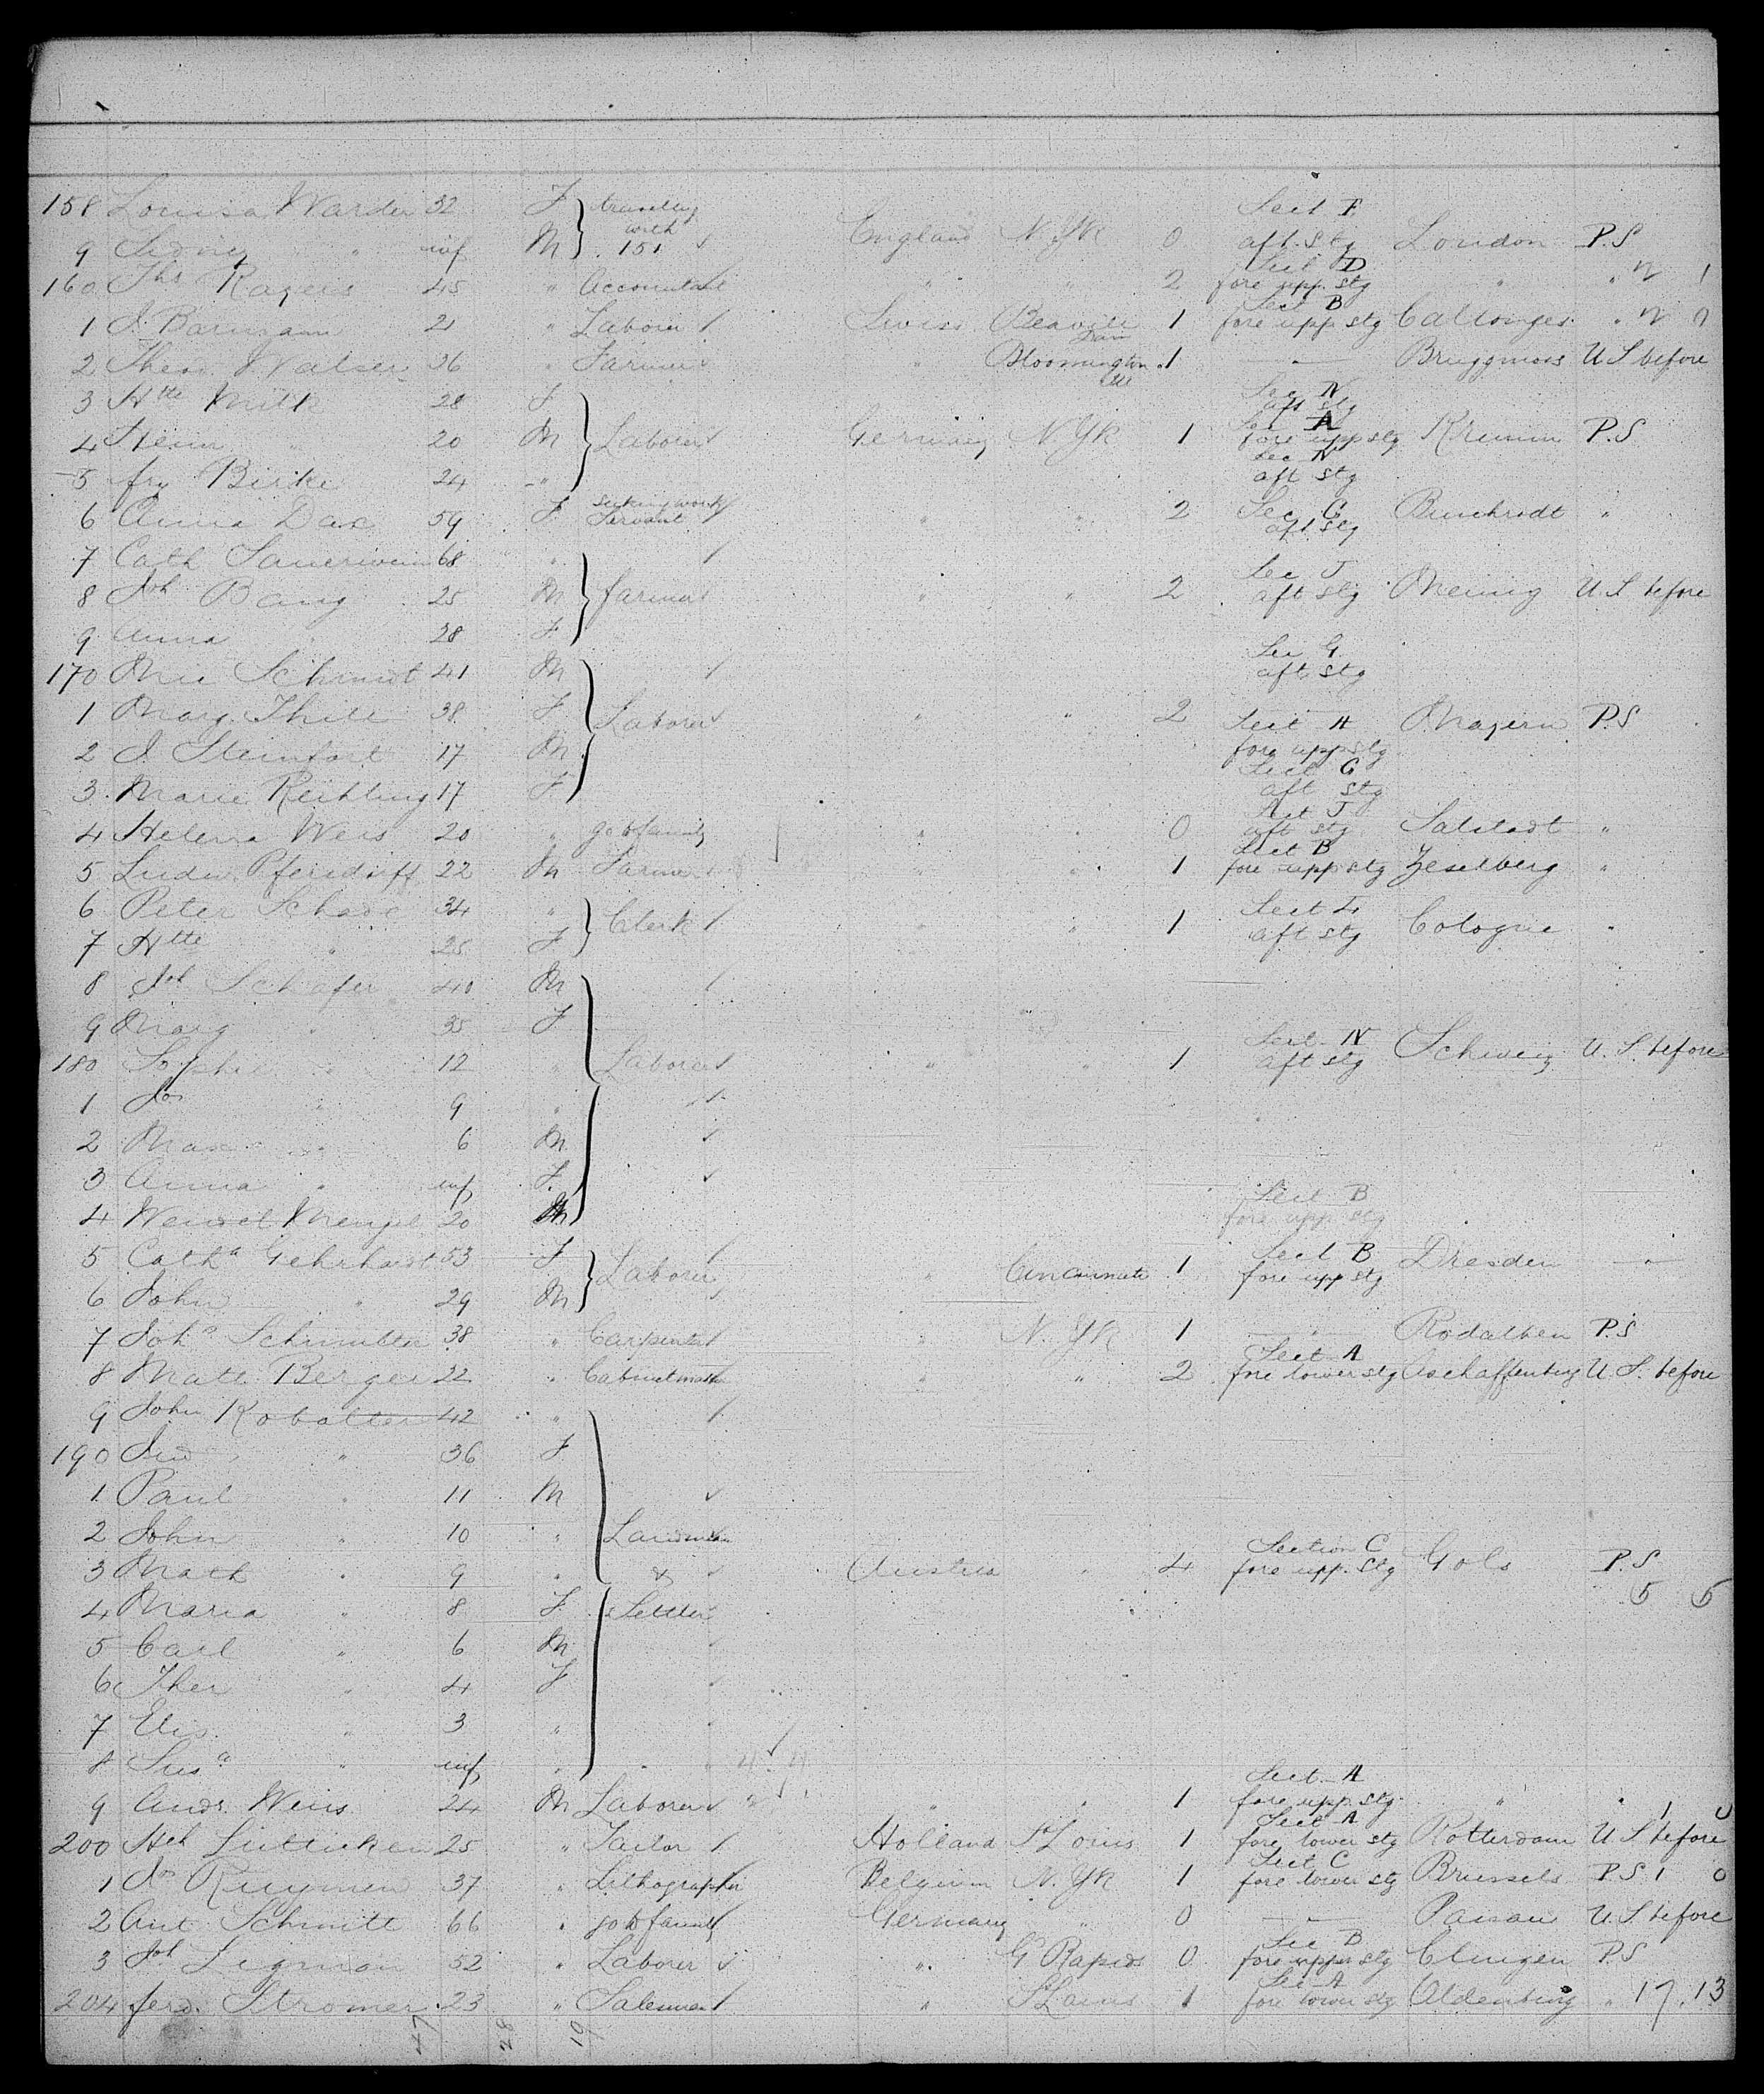 158 Louisa Warder 32 F } travelling with 151 Sect F
9 Sidney " inf M } England N.Yk 0 aft. Stg London P.S
160 Ths Rogers 45 " Accountant " " 2 Sect D fore upp. stg " "
1 J. Barmann 21 " Laborer Swiss 1 Sect B fore upp stg "
2 Theod. Walser 36 " Farmer " Bloomington Ill 1 " U S before
3 Htte Milk 28 F Sec N aft stg
4 Hein " 20 M } Laborer Germany N.Yk 1 Sec A fore upp stg P.S
5 frz Birke 24 " Sec N aft stg
6 Anna Dax 59 F seeking work Servant " " 2 Sec G aft stg "
7 Cath Sauerwein 68 "
8 Joh Bang 25 M } farmer " " 2 Sec J aft stg U.S before
9 Anna " 28 F
170 Mic Schmidt 41 M Sec G aft stg
1 Marg. Thill 38 F } Laborer " " 2 Sect A P.S
2 J. Steinfort 17 M fore upp stg
3 Marie Reichling 17 F Sect G aft stg
4 Helena Weis 20 " go to family " " 0 Sect J aft stg "
5 Ludw. 22 M Farmer " " 1 Sect B fore upp stg Zeselberg "
6 Peter Schade 34 " } Clerk " " 1 Sect L aft stg Cologne "
7 Htte " 25 F
8 Joh Schafer 40 M
9 Marg " 35 F
180 Sophie " 12 " } Laborer " " 1 Sect N aft stg Schweig U.S. before
1 Jos " 9 "
2 Max " 6 M
3 Anna " inf F
4 Wenzel Mengel 20 M Sect B fore upp stg
5 Catha Gehrhardt 53 F } Laborer " Cincinnati 1 Sect B fore upp stg Dresden "
6 John " 29 M
7 Joha 38 " Carpenter " N.Yk 1 " Rodalben P.S
8 Matt. Berger 22 " Cabinetmaker " " 2 Sect A fore lower stg Aschaffenburg U.S. before
9 John Kobalter 42 "
190 " 36 F
1 Paul " 11 M
2 John " 10 " Landman
3 Math " 9 " & Austria " 4 Section C fore upp. Stg Gols P.S
4 Maria " 8 F Settler 5 5
5 Carl " 6 M
6 Ther " 4 F
7 Elis. " 3 "
8 Susa " inf "
9 Andr. Weiss 24 M Laborer " " 1 Sect A fore upp. stg " " 1 0
200 Hch 25 " Tailor Holland St Louis 1 Sect A fore lower stg Rotterdam U S before
1 37 " Lithographer Belgium N.Yk 1 Sect C fore lower stg Brussels P.S 1 0
2 Ant Schmitt 66 " go to family Germany " 0 " Passau U.S. before
3 Joh Ligman 52 " Laborer " G Rapids 0 Sec B fore upper stg Clingen P.S
204 ferd. Stromer 23 " Salesman " St Louis 1 Sec A fore lower stg Oldenburg " 17 13